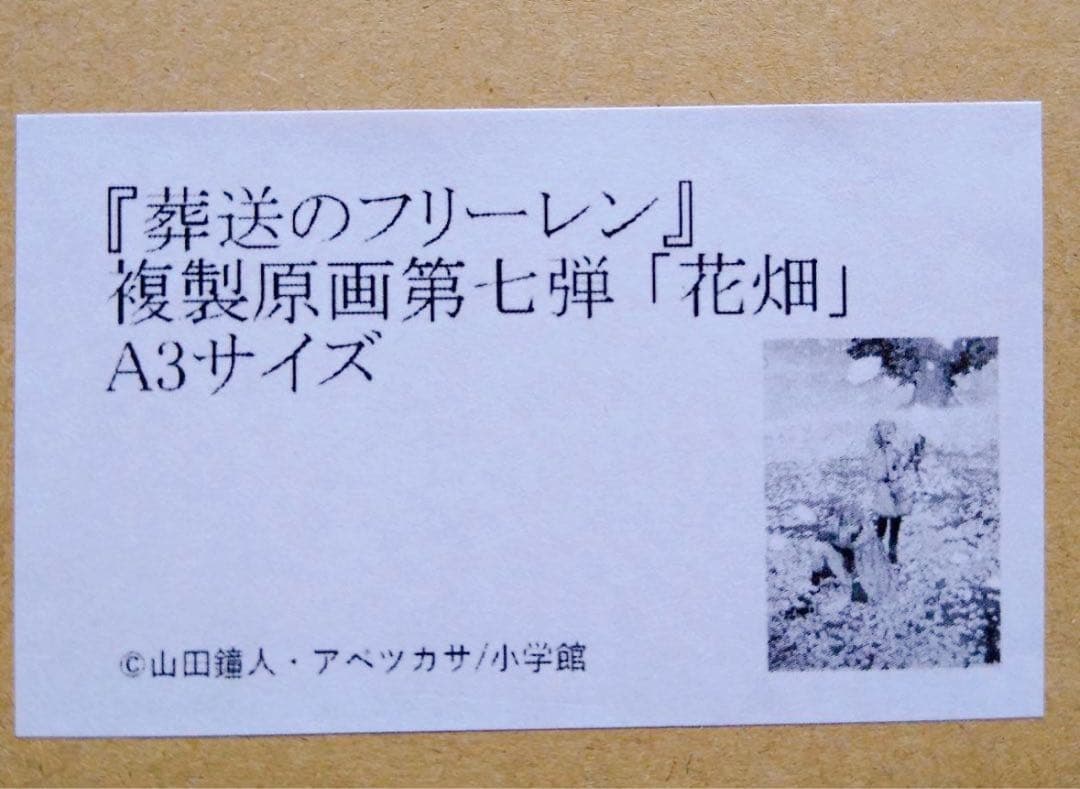 『葬送のフリーレン』
複製原画第七弾「花畑」
A3サイズ
©山田鐘人・アベツカサ/小学館